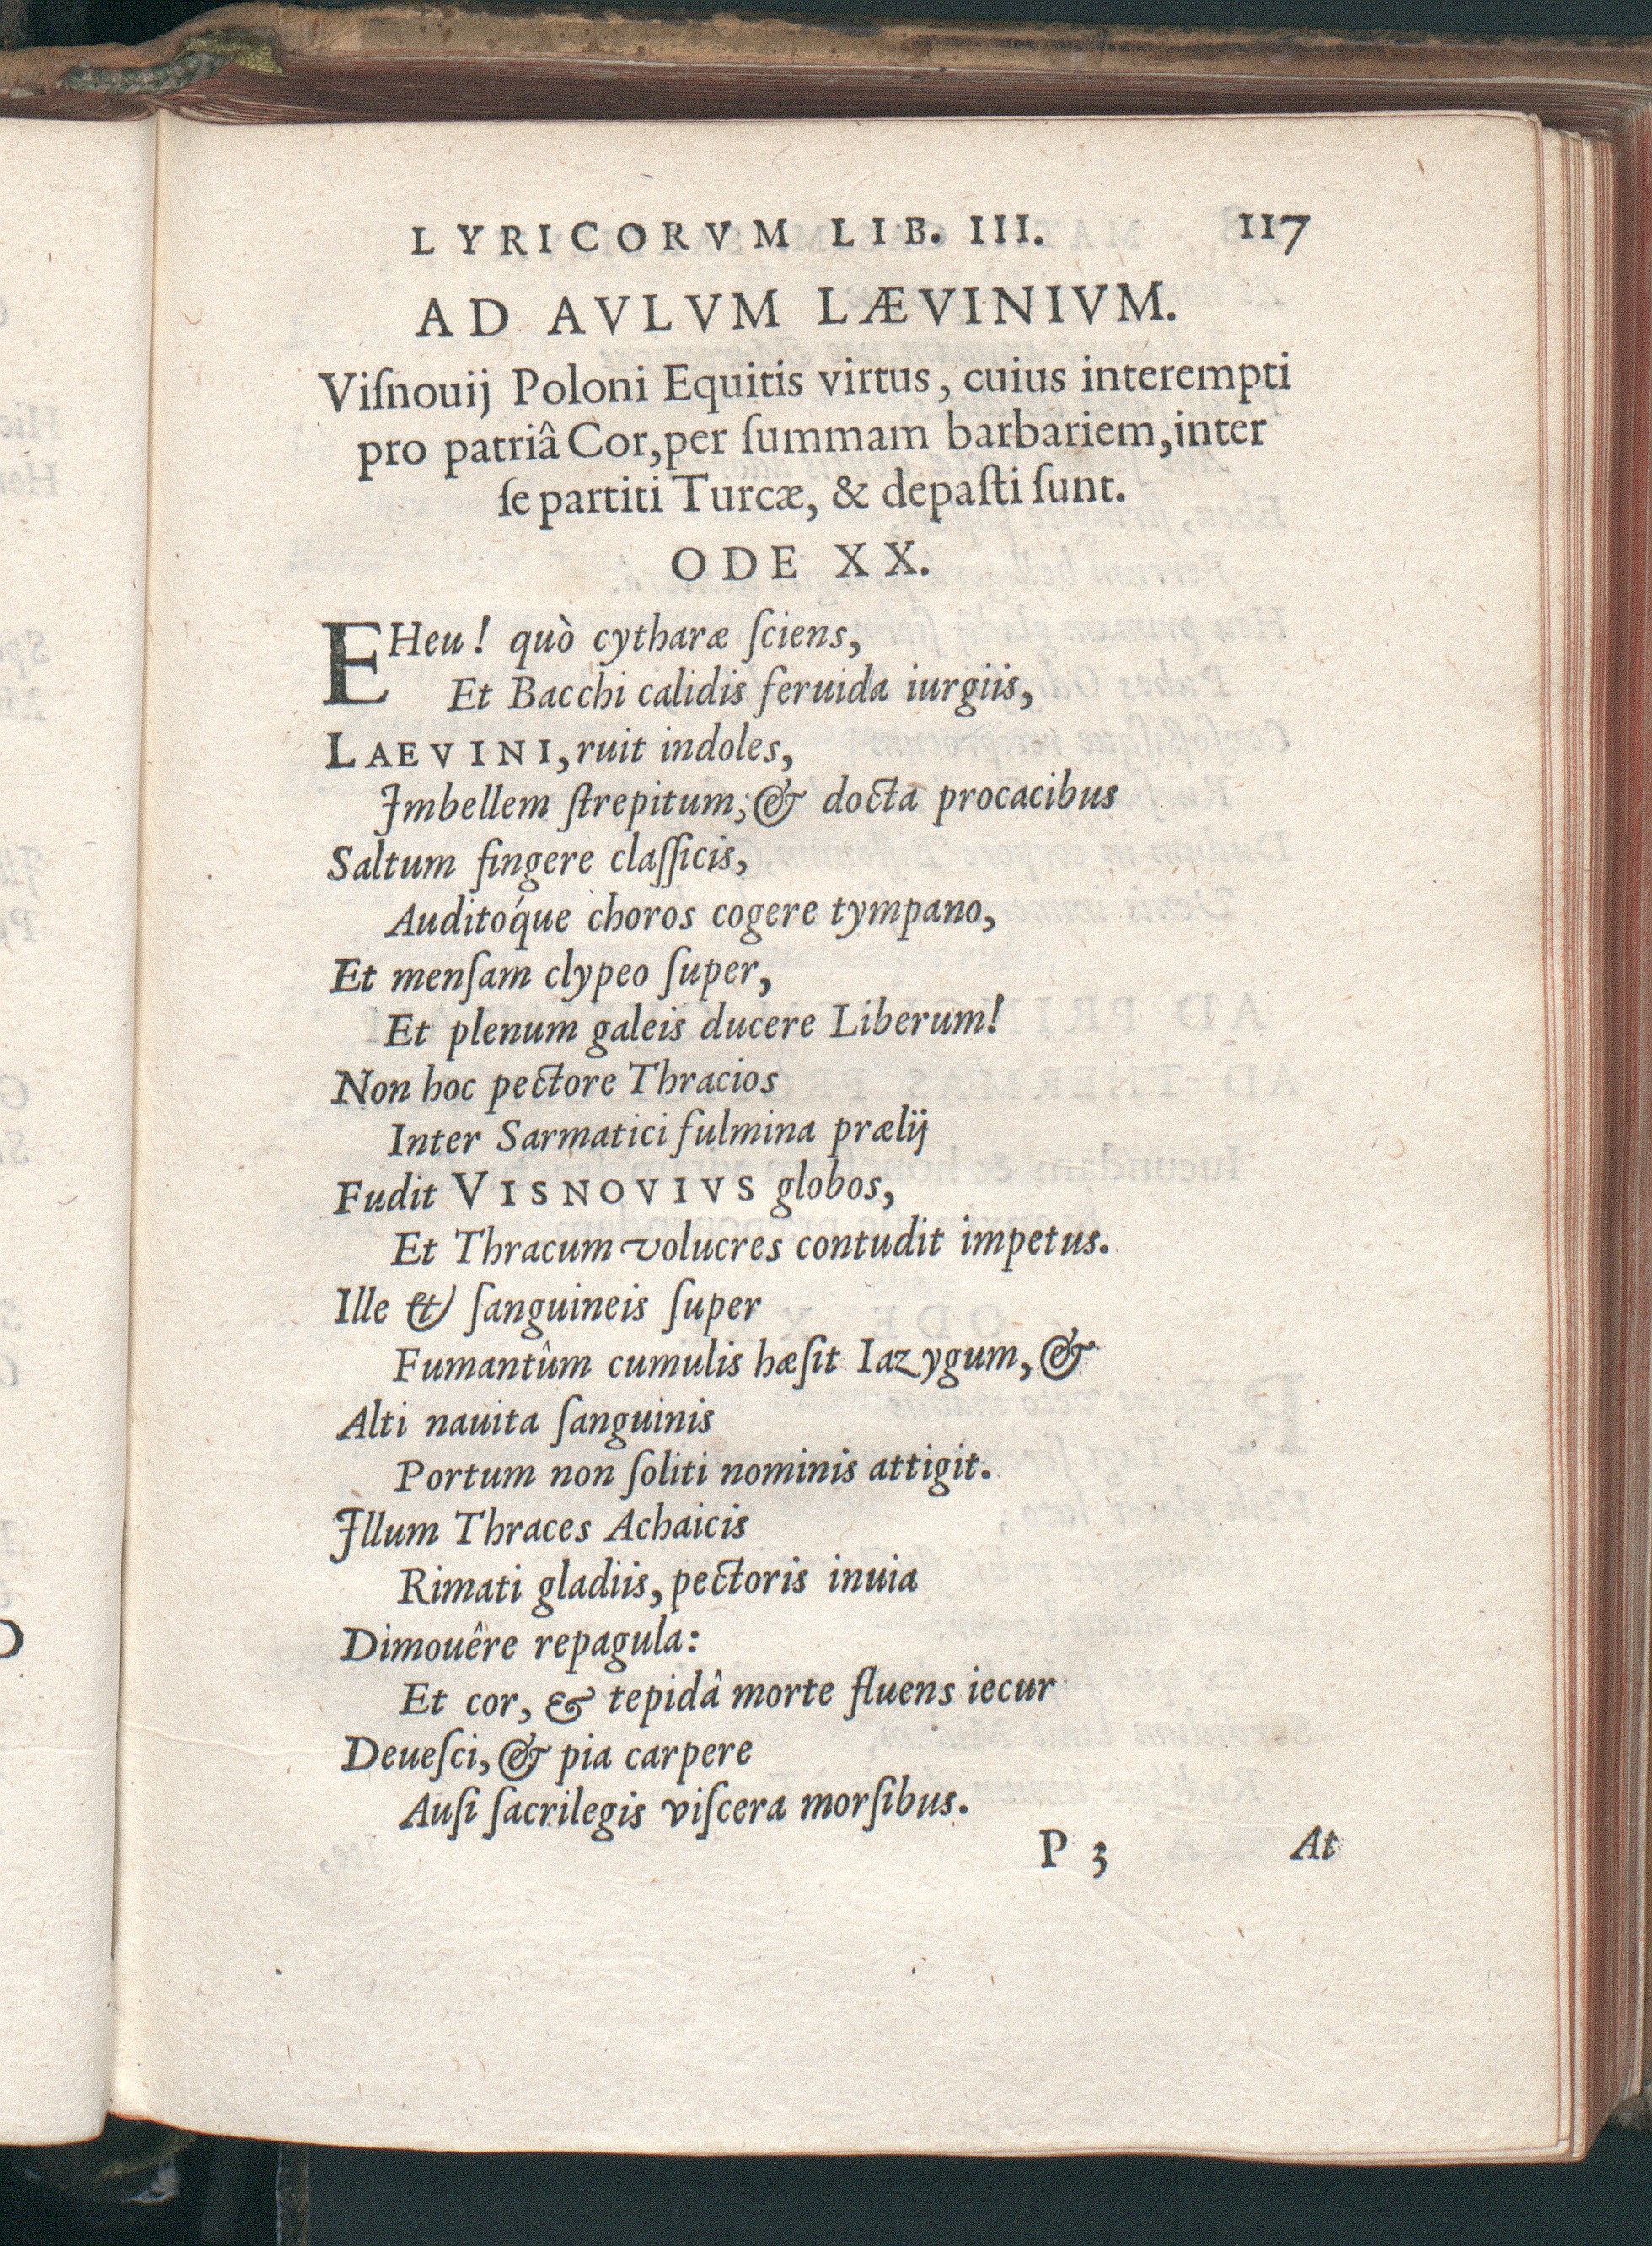 LYRICORVM LIB. III. 117
AD AVLVM LÆVINIVM.
Viſnouij Poloni Equitis virtus, cuius interempti
pro patriâ Cor, per ſummam barbariem, inter
ſe partiti Turcæ, & depaſti ſunt.
ODE XX.
EHeu! quò cytharæ ſciens,
Et Bacchi calidis feruida iurgiis,
LAEVINI, ruit indoles,
Imbellem ſtrepitum, & docta procacibus
Saltum fingere claſſicis,
Auditóque choros cogere tympano,
Et menſam clypeo ſuper,
Et plenum galeis ducere Liberum!
Non hoc pectore Thracios
Inter Sarmatici fulmina prælij
Fudit VISNOVIVS globos,
Et Thracum volucres contudit impetus.
Ille & ſanguineis ſuper
Fumantûm cumulis hæſit Iazygum, &
Alti nauita ſanguinis
Portum non ſoliti nominis attigit.
Illum Thraces Achaicis
Rimati gladiis, pectoris inuia
Dimouêre repagula:
Et cor, & tepidâ morte fluens iecur
Deueſci, & pia carpere
Auſi ſacrilegis viſcera morſibus.
P 3 At